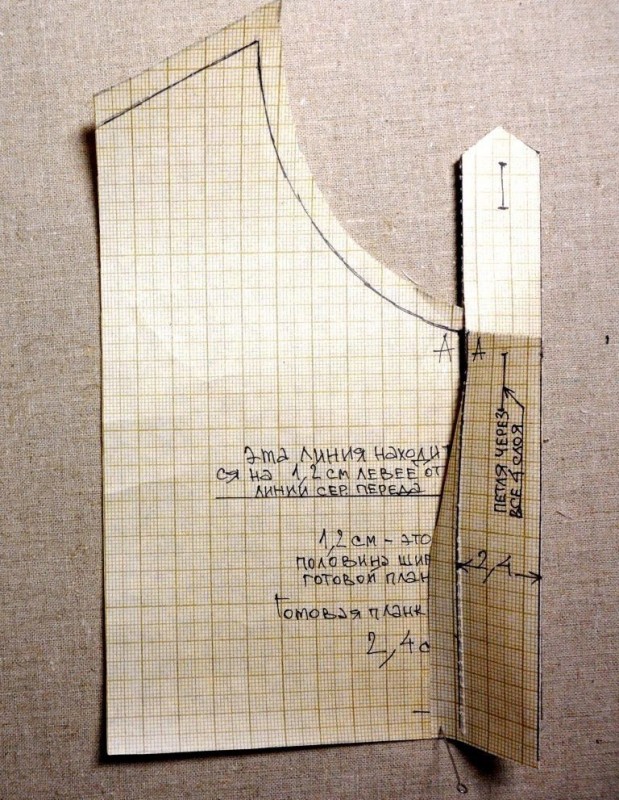 А А
ЭТА ЛИНИЯ НАХОДИТ
СЯ НА 1,2 СМ ЛЕВЕЕ ОТ
ЛИНИИ СЕР ПЕРЕДА
1,2 СМ – ЭТО
ПОЛОВИНА ШИР
ГОТОВОЙ ПЛАН
ГОТОВАЯ ПЛАНК
2,4 С
ПЕТЛЯ ЧЕРЕЗ
ВСЕ 4 СЛОЯ
2,4